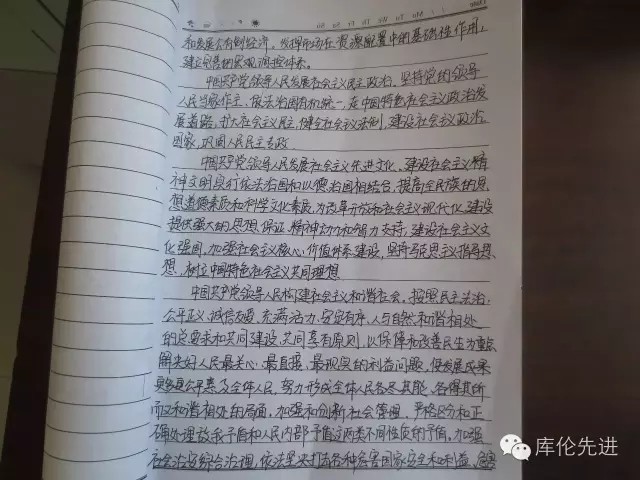 和发展公有制经济,发挥市场在资源配置中的基础性作用,
建立完善的宏观调控体系。
中国共产党领导人民发展社会主义民主政治、坚持党的领导
人民当家作主、依法治国有机统一,在中国特色社会主义政治发
展道路,扩大社会主义民主,健全社会主义法制,建设社会主义政治
国家,巩固人民民主专政
中国共产党领导人民发展社会主义先进文化、建设社会主义精
神文明实行依法治国和以德治国相结合,提高全民族的思
想道德素质和科学文化素质,为改革开放和社会主义现代化建设
提供强大的思想保证、精神动力和智力支持,建设社会主义文
化强国,加强社会主义核心价值体系建设,坚持马克思主义指导思
想,树立中国特色社会主义共同理想
中国共产党领导人民构建社会主义和谐社会。按照民主法治、
公平正义、诚信友爱、充满活力、安定有序、人与自然和谐相处
的总要求和共同建设、共同享有原则,以保障和改善民生为重点
解决好人民最关心、最直接、最现实的利益问题,使发展成果
更多更公平惠及全体人民,努力形成全体人民各尽其能、各得其所
而又和谐相处的局面,加强和创新社会管理,严格区分和正
确处理敌我矛盾和人民内部矛盾这两类不同性质的矛盾,加强
社会治安综合治理,依法坚决打击各种危害国家安全和利益、危害
库伦先进